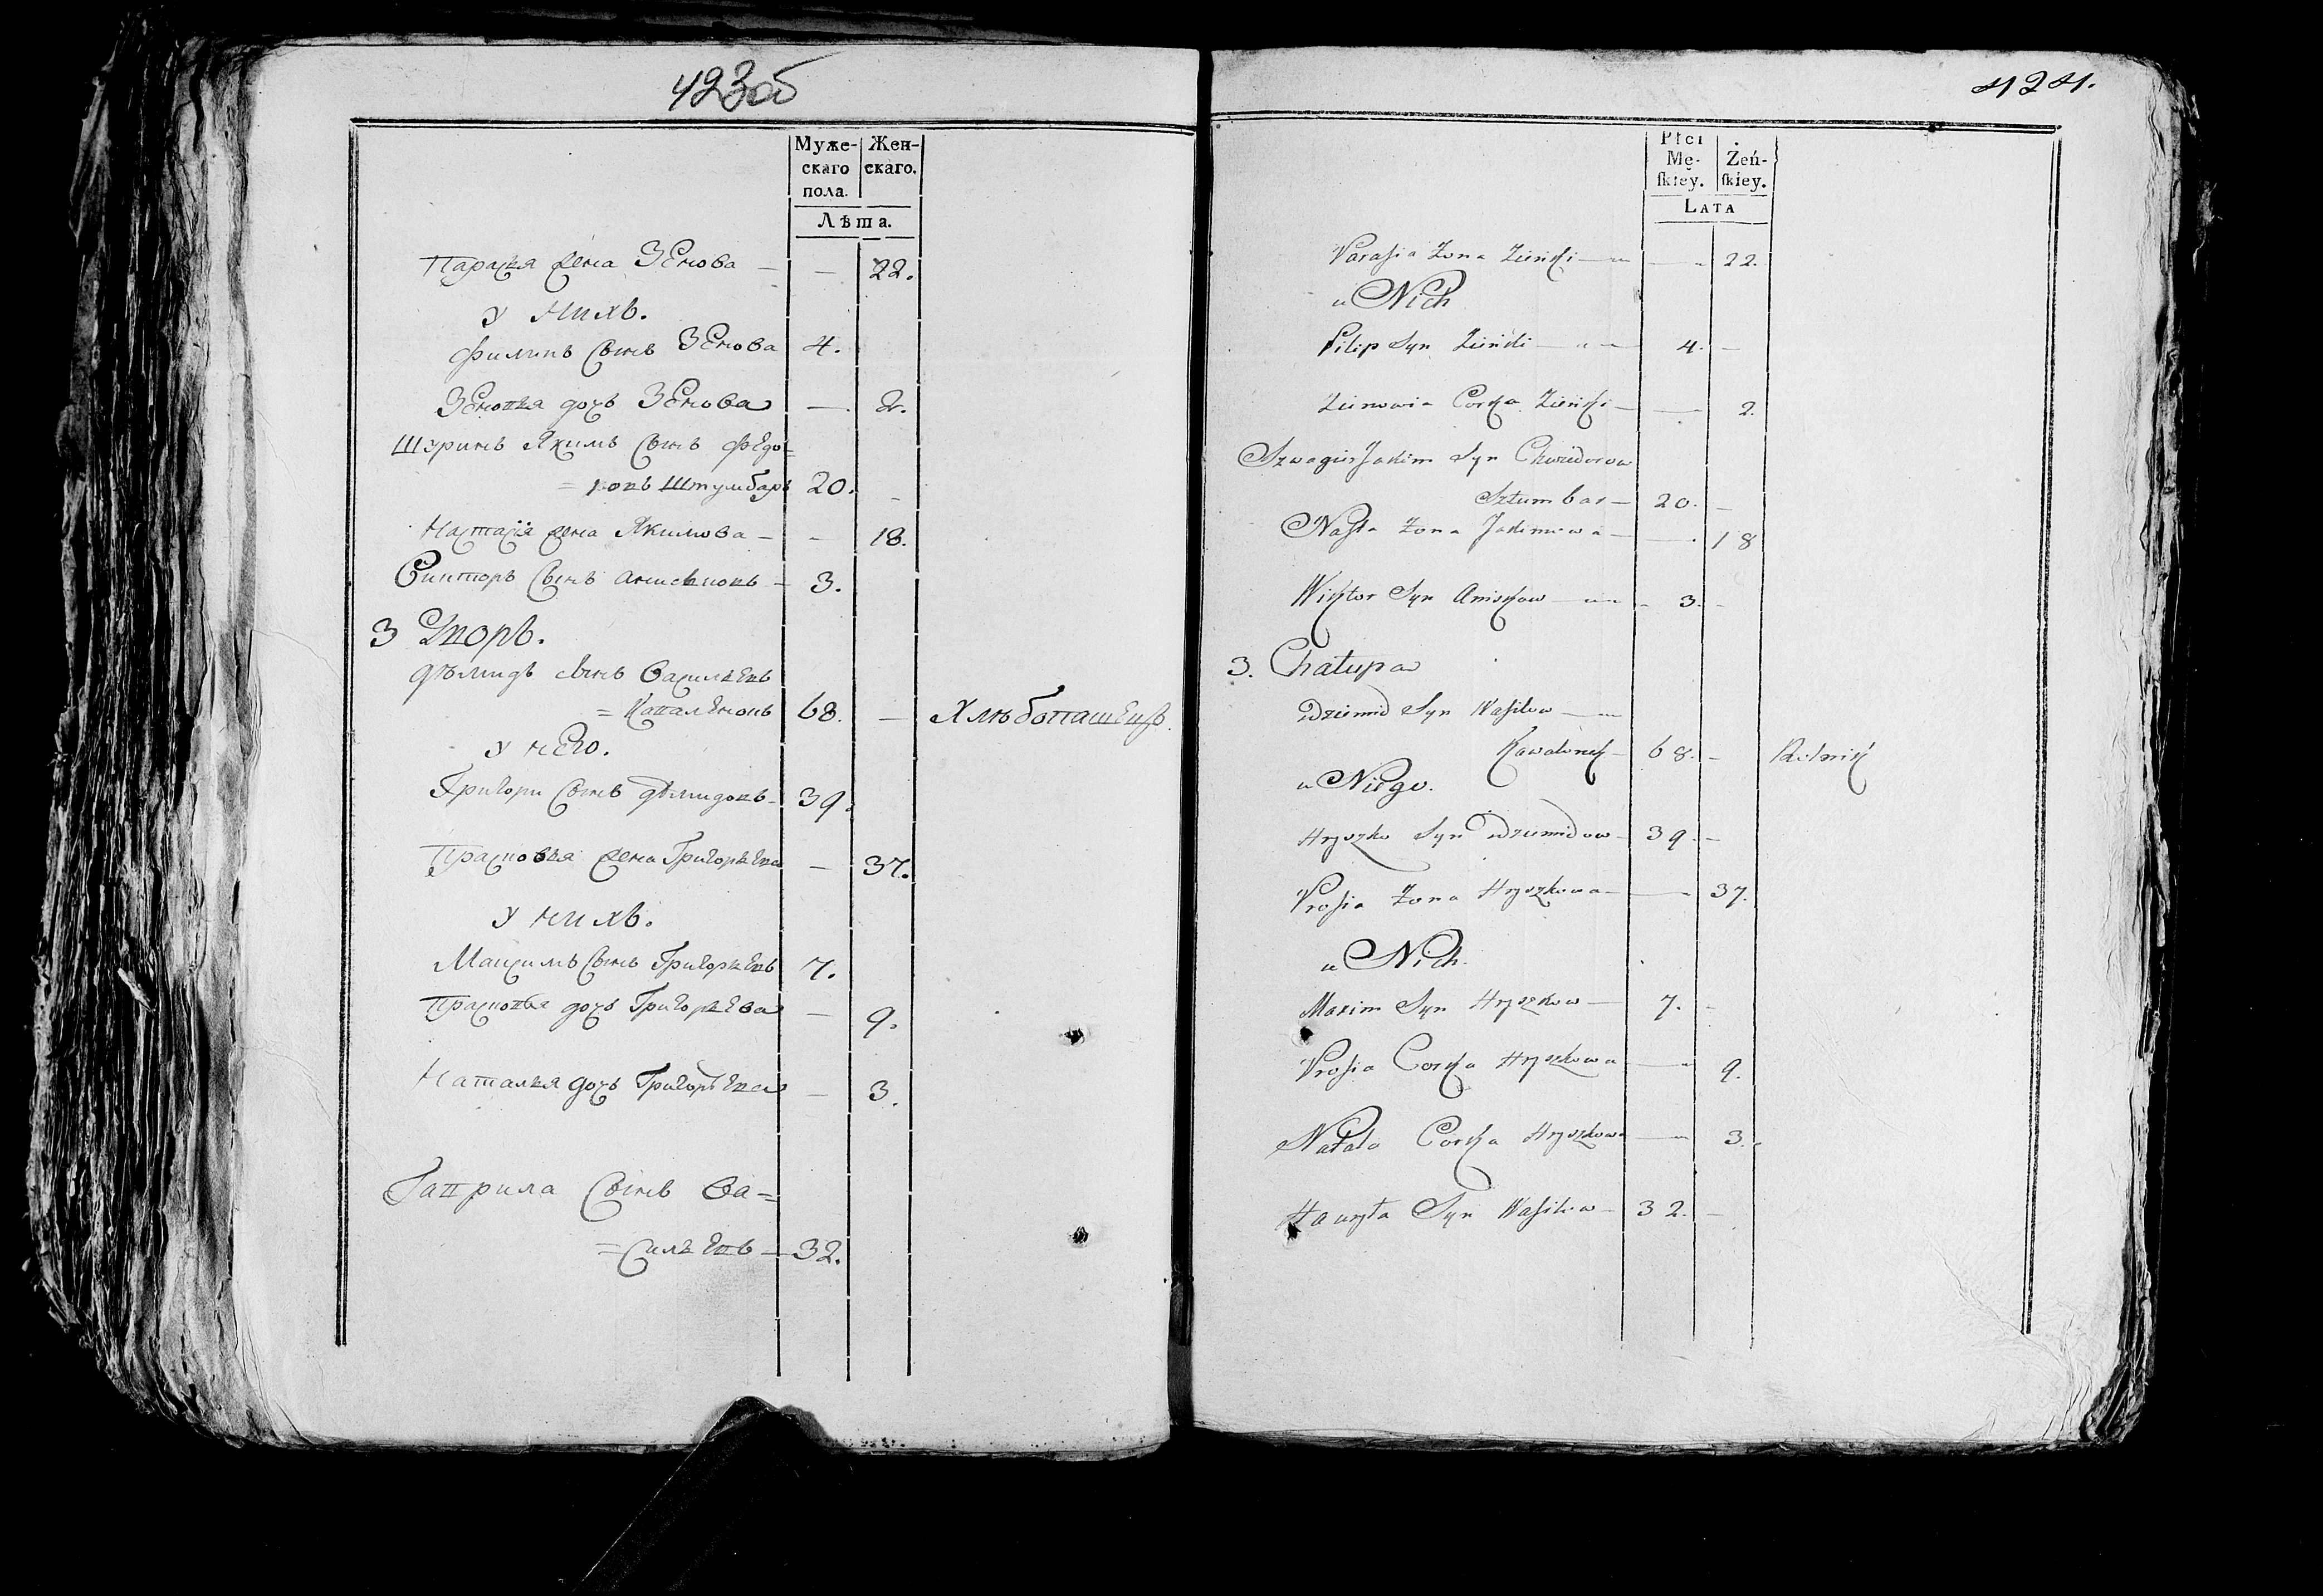 423об
Муже- Жен-
скаго скаго.
пола.
Лѣта.
Параския жена Зенова — — 22.
у нихъ.
Филипъ сынъ Зенова 4.
Зеновия дочь Зенова — 2.
Шуринъ Яким сынъ Федо=
=ровъ Штумбаръ 20. -
Настасїя жена Якимова - - 18.
Виктор сынъ Анисковъ - 3.
3 Дворъ.
Демидъ сынъ Васильевъ
= Каваленокъ 68. — Хлѣбопашецъ.
у него.
Григори сынъ Демидовъ - 39.
Прасковья жена Григорьева — 37.
у нихъ.
Максимъ сынъ Григорьевъ 7.
Прасковья дочь Григорьева — 9.
Наталья дочь Григорьева — 3.
Гаврила сынъ Ва=
=сильевъ — 32.
424.
Płci
Mę- Żeń-
skiey. skiey.
LATA
Parasia Żona Zieńki — — 22.
u Nich
Pilip Syn Zieńki — 4. -
Zienowia Corka Zieńki — — 2.
Szwagier Jakim Syn Chwiedorow
Sztumbar — 20. -
Nasta Żona Jakimowa — — 18
Wiktor Syn Aniskow — 3. -
3. Chałupa
Dziemid Syn Wasilow —
Kowalonek — 68. - Rolnik
u Niego.
Hryszko Syn Dziemidow — 39. -
Prosia Żona Hryszkowa — — 37.
u Nich
Maxim Syn Hryszkow — 7. -
Prosia Corka Hryszkowa — 9.
Natala Corka Hryszkowa — 3.
Hawryła Syn Wasilow — 32. -